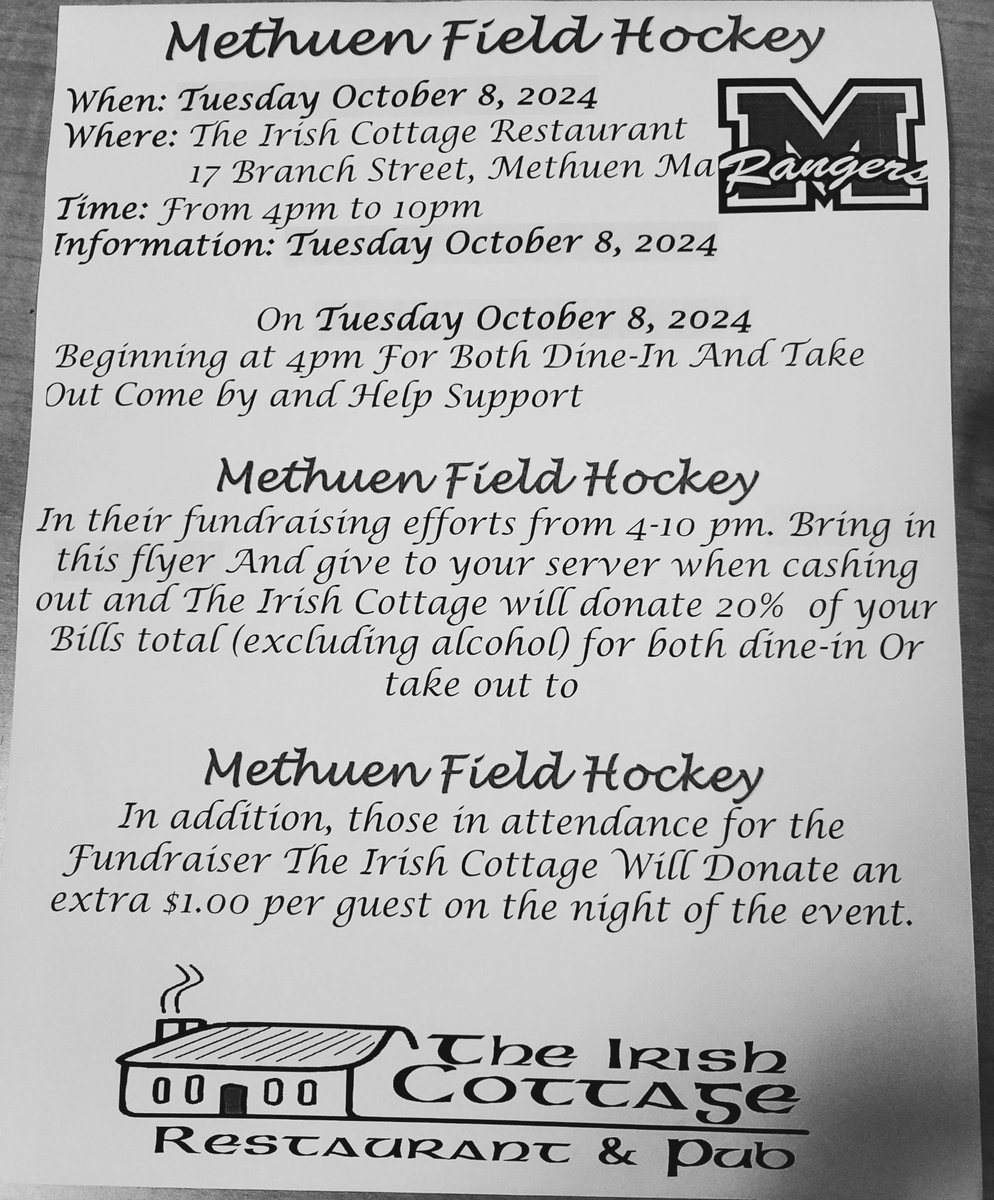 Methuen Field Hockey
When: Tuesday October 8, 2024
Where: The Irish Cottage Restaurant
17 Branch Street, Methuen Ma
Rangers
M
Time: From 4pm to 10pm
Information: Tuesday October 8, 2024
On Tuesday October 8, 2024
Beginning at 4pm For Both Dine-In And Take
Out Come by and Help Support
Methuen Field Hockey
In their fundraising efforts from 4-10 pm. Bring in
this flyer And give to your server when cashing
out and The Irish Cottage will donate 20% of your
Bills total (excluding alcohol) for both dine-in Or
take out to
Methuen Field Hockey
In addition, those in attendance for the
Fundraiser The Irish Cottage Will Donate an
extra $1.00 per guest on the night of the event.
The Irish
Cottage
Restaurant & Pub